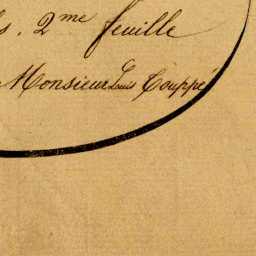 s. 2me feuille
Monsieur Louis Couppé